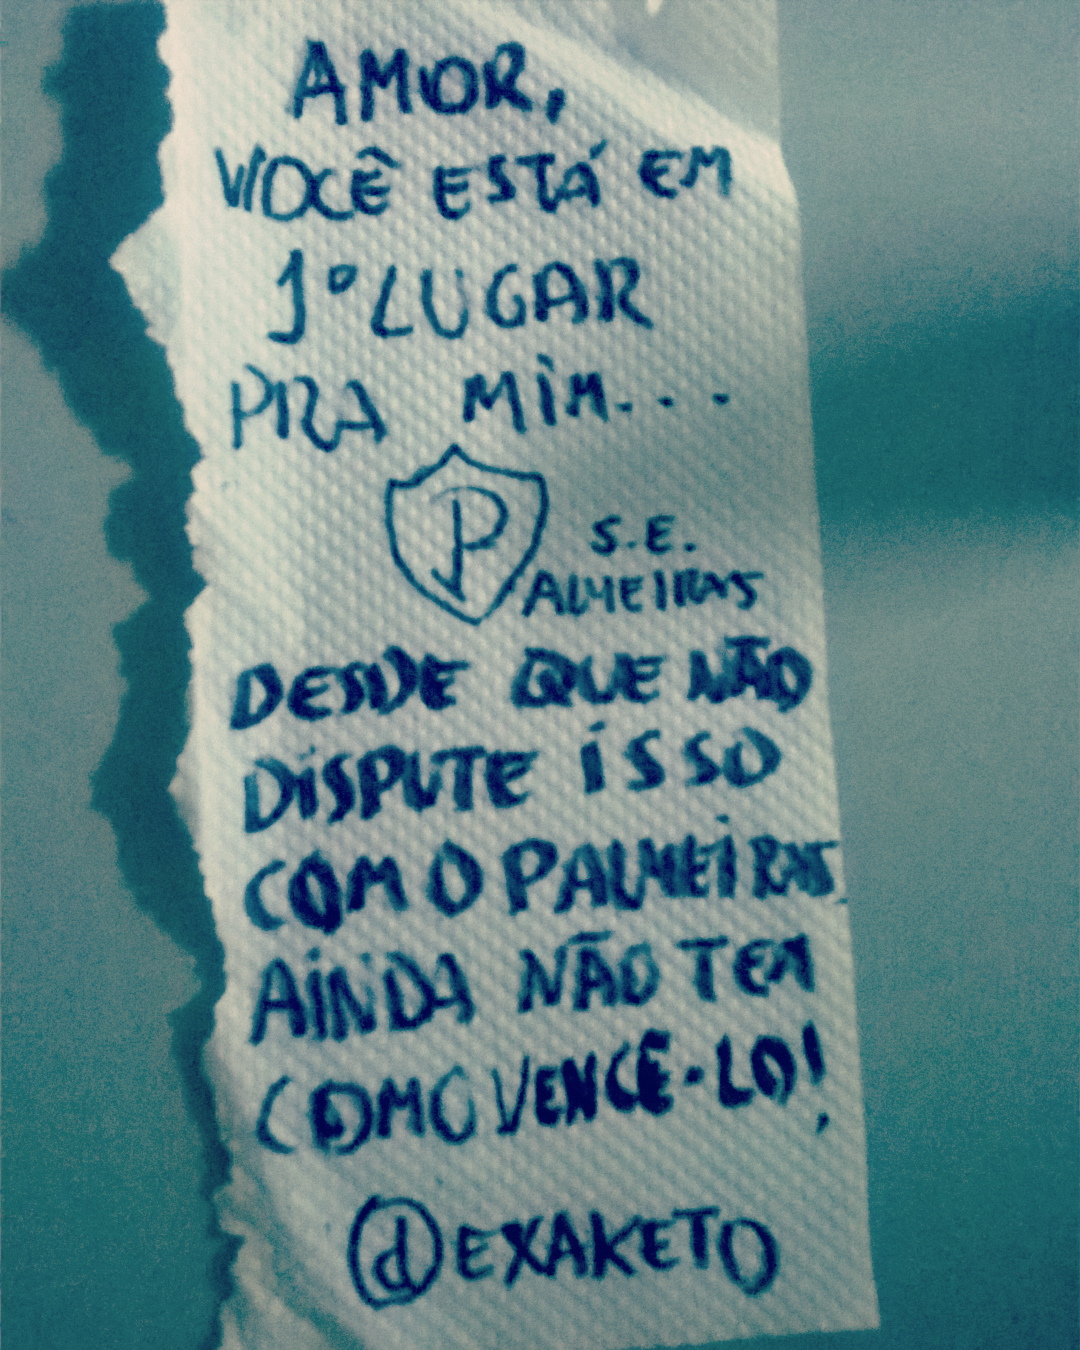 AMOR,
VOCÊ ESTÁ EM
1º LUGAR
PRA MIM...
P S.E.
ALMEIRAS
DESDE QUE NÃO
DISPUTE ISSO
COM O PALMEIRAS.
AINDA NÃO TEM
COMO VENCÊ-LO!
@EXAKETO